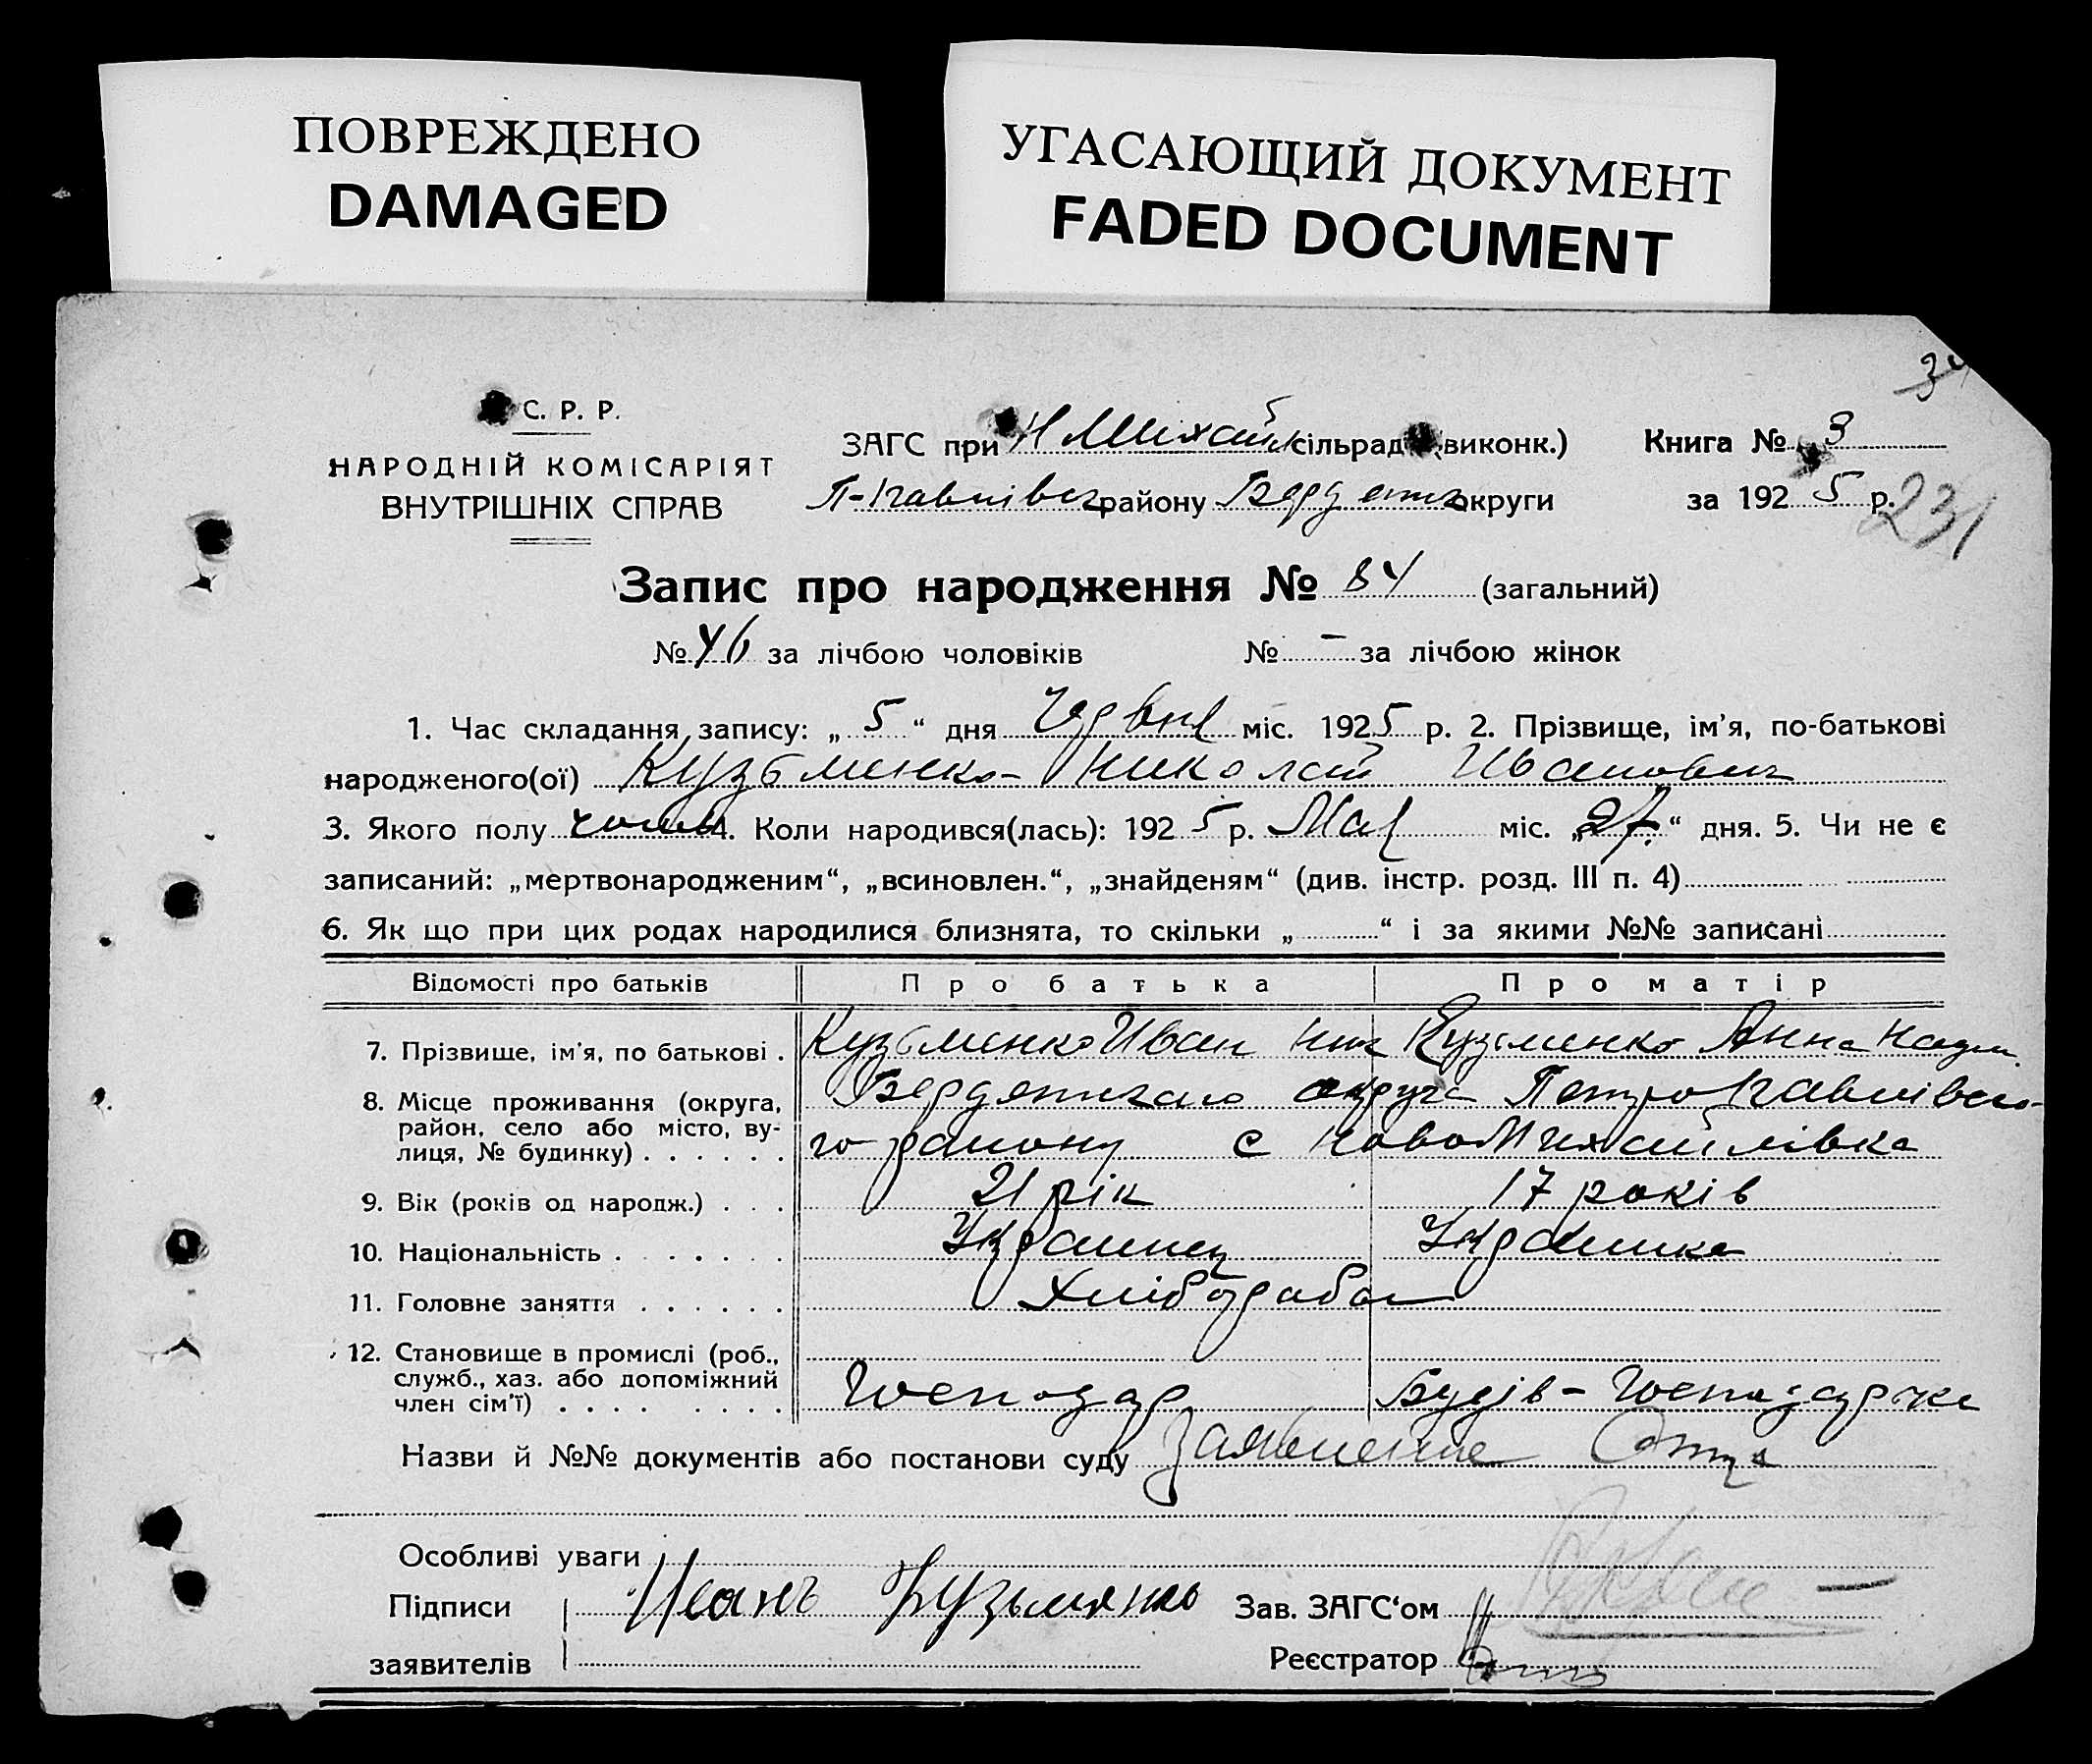 ПОВРЕЖДЕНО
DAMAGED
УГАСАЮЩИЙ ДОКУМЕНТ
FADED DOCUMENT
34
С. Р. Р.
НАРОДНІЙ КОМІСАРІЯТ
ВНУТРІШНІХ СПРАВ
ЗАГС при Н Михайл сільрад (виконк.)
П-Павлівск району Бердянск округи
Книга № 3
за 1925 р.
231
Запис про народження № 84 (загальний)
№ 46 за лічбою чоловіків № – за лічбою жінок
1. Час складання запису: „5“ дня Червня міс. 1925 р. 2. Прізвище, ім'я, по-батькові
народженого(ої) Кузьменко Николай Иванович
3. Якого полу чолов 4. Коли народився(лась): 1925 р. Мая міс. „27“ дня. 5. Чи не є
записаний: „мертвонародженим“, „всиновлен.“, „знайденям“ (див. інстр. розд. III п. 4)
6. Як що при цих родах народилися близнята, то скільки „ “ і за якими №№ записані
Відомості про батьків Про батька Про матір
7. Прізвище, ім'я, по батькові . Кузьменко Иван Ник Кузьменко Анна
8. Місце проживання (округа, район, село або місто, вулиця, № будинку) . . . . . . Бердянского округа Петропавлівско-
го району с НовоМихайлівка
9. Вік (років од народж.) . . . 21 рік 17 років
10. Національність . . . . . . Украинец Украинка
11. Головне заняття . . . . . . Хлібороба
12. Становище в промислі (роб., служб., хаз. або допоміжний член сім'ї) . . . . . . . . Господар Госпадарчка
Назви й №№ документів або постанови суду Заявление Отца
Особливі уваги
Підписи Иванъ Кузьменко Зав. ЗАГС'ом
заявителів Реєстратор